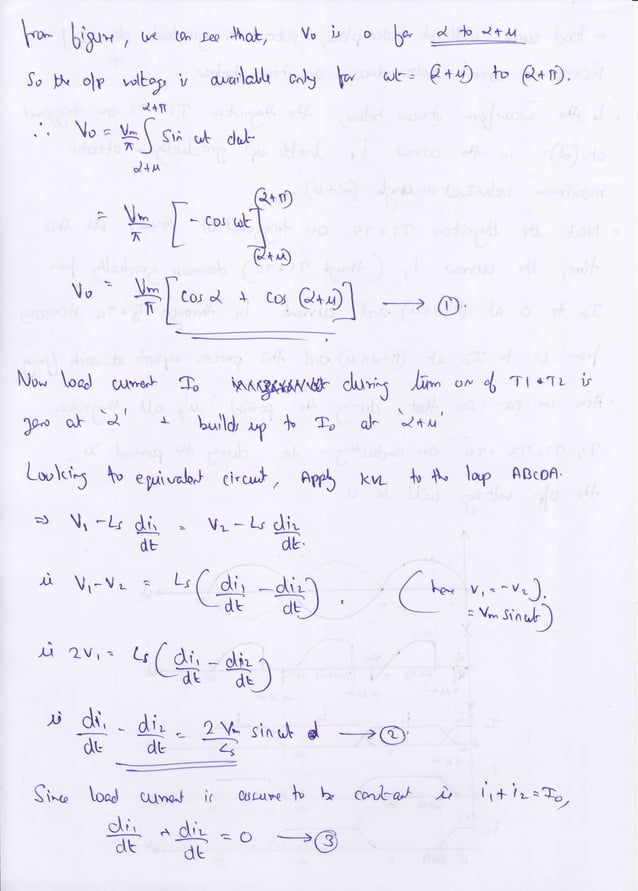 from figure, we can see that, Vo is 0 for α to α+μ
So the o/p voltage is available only for ωt = (α+μ) to (α+π).
∴ Vo = Vm/π ∫ α+μ to α+π Sin ωt dωt
= Vm/π [- cos ωt] (α+π) (α+μ)
Vo = Vm/π [cos α + cos (α+μ)] → ①
Now load current Io during turn on of T1 & T2 is
zero at 'α' & builds up to Io at 'α+μ'
Looking to equivalent circuit, Apply KVL to the loop ABCDA.
⇒ V1 - Ls di1/dt = V2 - Ls di2/dt.
ie V1-V2 = Ls (di1/dt - di2/dt). (here V1 = -V2).
= Vm sinωt)
ie 2V1 = Ls (di1/dt - di2/dt)
ie di1/dt - di2/dt = 2Vm/Ls sin ωt → ②
Since load current is assume to be constant ie i1+i2=Io,
di1/dt + di2/dt = 0 → ③